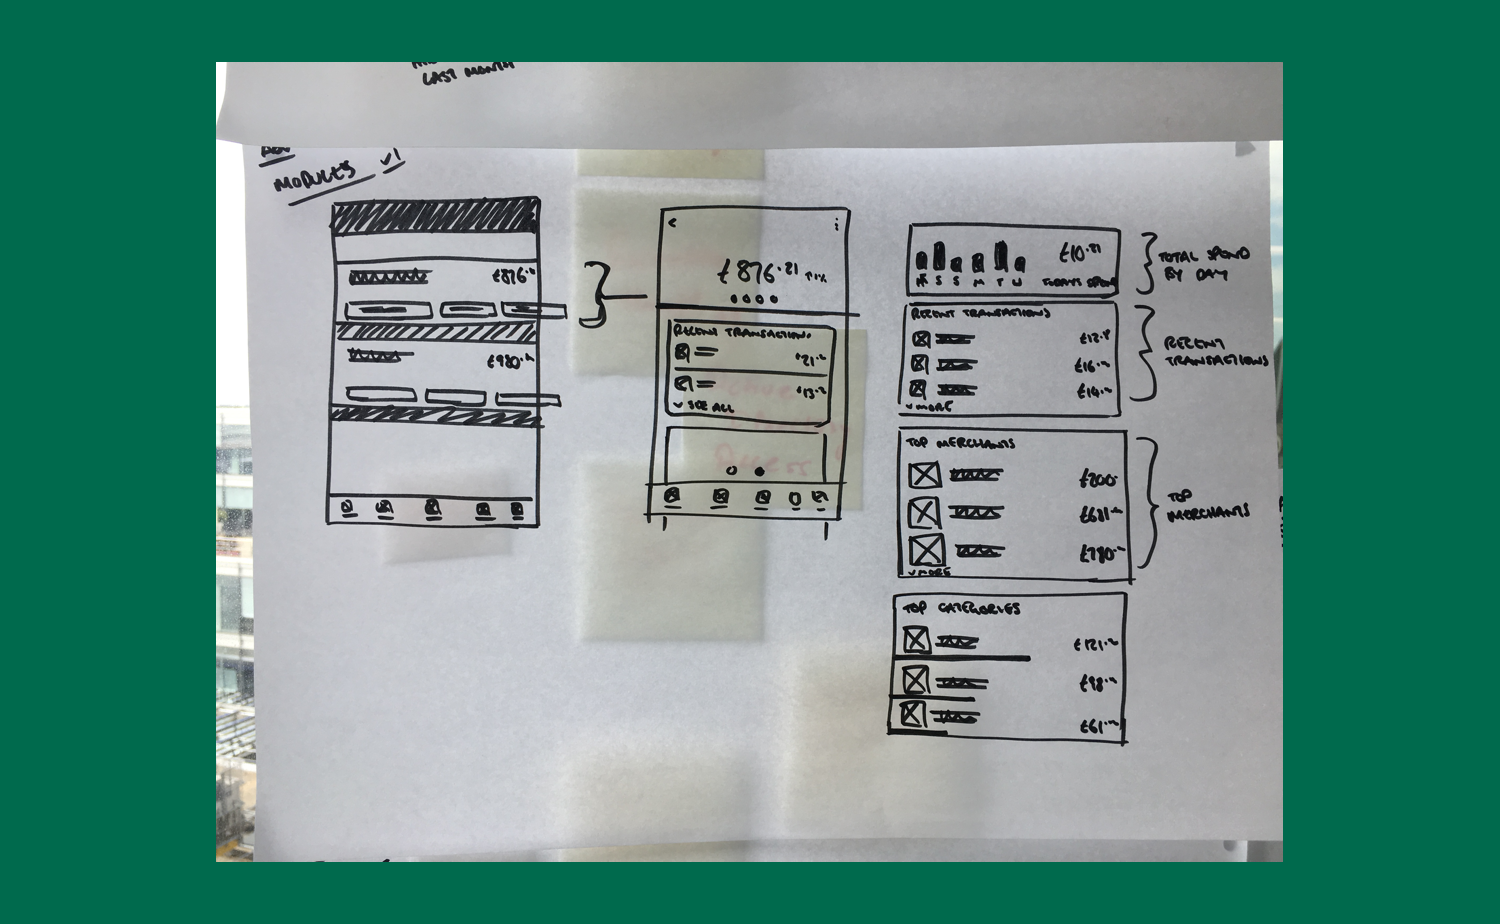 LAST MONTH
MODULES v1
£876.
£980.
<
£876.21
RECENT TRANSACTIONS
£21.
£13.
v SEE ALL
£10.21
S S M T W
TODAYS SPEND
TOTAL SPEND
BY DAY
RECENT TRANSACTIONS
£12.
£16.
£14.
v MORE
RECENT
TRANSACTIONS
TOP MERCHANTS
£800.
£681.
£780.
v MORE
TOP
MERCHANTS
TOP CATEGORIES
£121.
£98.
£61.